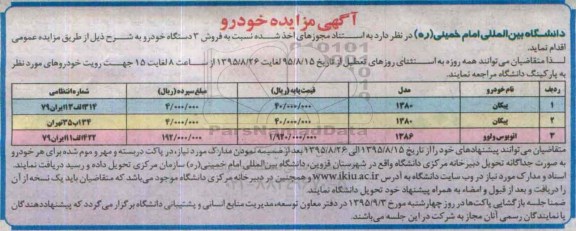 آگهی مزایده خودرو
دانشگاه بین‌المللی امام خمینی(ره) در نظر دارد به استناد مجوزهای اخذ شده نسبت به فروش ۳ دستگاه خودرو به شرح ذیل از طریق مزایده عمومی
اقدام نماید.
لذا متقاضیان می توانند همه روزه به استثنای روزهای تعطیل از تاریخ ۹۵/۸/۱۵ لغایت ۱۳۹۵/۸/۲۶ از ساعت ۸ لغایت ۱۵ جهت رویت خودروهای مورد نظر
به پارکینگ دانشگاه مراجعه نمایند.
ردیف نام خودرو مدل قیمت پایه (ریال) مبلغ سپرده (ریال) شماره انتظامی
۱ پیکان ۱۳۸۰ ۴۰/۰۰۰/۰۰۰ ۴/۰۰۰/۰۰۰ ۳۱۴الف۱۳ایران۷۹
۲ پیکان ۱۳۸۰ ۴۰/۰۰۰/۰۰۰ ۴/۰۰۰/۰۰۰
۳ اتوبوس ولوو ۱۳۸۶ ۱/۹۴۰/۰۰۰/۰۰۰ ۱۹۴/۰۰۰/۰۰۰
متقاضیان می‌توانند پیشنهادهای خود را از تاریخ ۱۳۹۵/۸/۱۵ الی ۱۳۹۵/۸/۲۶ بعد از ضمیمه نمودن مدارک مورد نیاز، در پاکت دربسته و مهر و موم شده برای هر خودرو
به صورت جداگانه تحویل دبیرخانه مرکزی دانشگاه واقع در شهرستان قزوین، دانشگاه بین المللی امام خمینی(ره) سازمان مرکزی تحویل داده و رسید دریافت نمایند.
اسناد و مدارک مورد نیاز در وب سایت دانشگاه به آدرس www.ikiu.ac.ir و همچنین در دبیرخانه مرکزی دانشگاه موجود می‌باشد که متقاضیان باید یک نسخه از آن
را دریافت و بعد از قبول و امضاء به همراه پیشنهاد خود تحویل دانشگاه نمایند.
ضمنا جلسه بازگشایی پاکت‌ها در روز چهارشنبه مورخ ۱۳۹۵/۹/۳ در دفتر معاون توسعه، مدیریت منابع انسانی و پشتیبانی دانشگاه برگزار می‌گردد که پیشنهاددهندگان
یا نمایندگان رسمی آنان مجاز به شرکت در این جلسه می‌باشند.